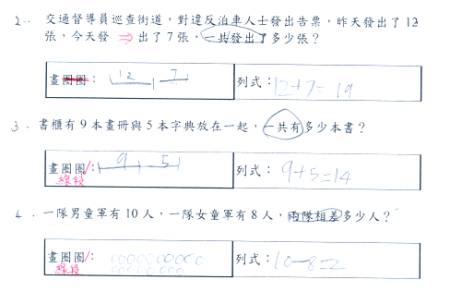 2. 交通督導員巡查街道，對違反泊車人士發出告票，昨天發出了 12
張，今天發 ⇒ 出了 7 張，一共發出了多少張？
畫圈圈 12 7 列式：12+7=19
3. 書櫃有 9 本畫冊與 5 本字典放在一起，一共有多少本書？
畫圈圈/： 9 5 列式：9+5=14
線段
4. 一隊男童軍有 10 人，一隊女童軍有 8 人，兩隊相差多少人？
畫圈圈/： 0000000000 列式：10-8=2
線段 00000000